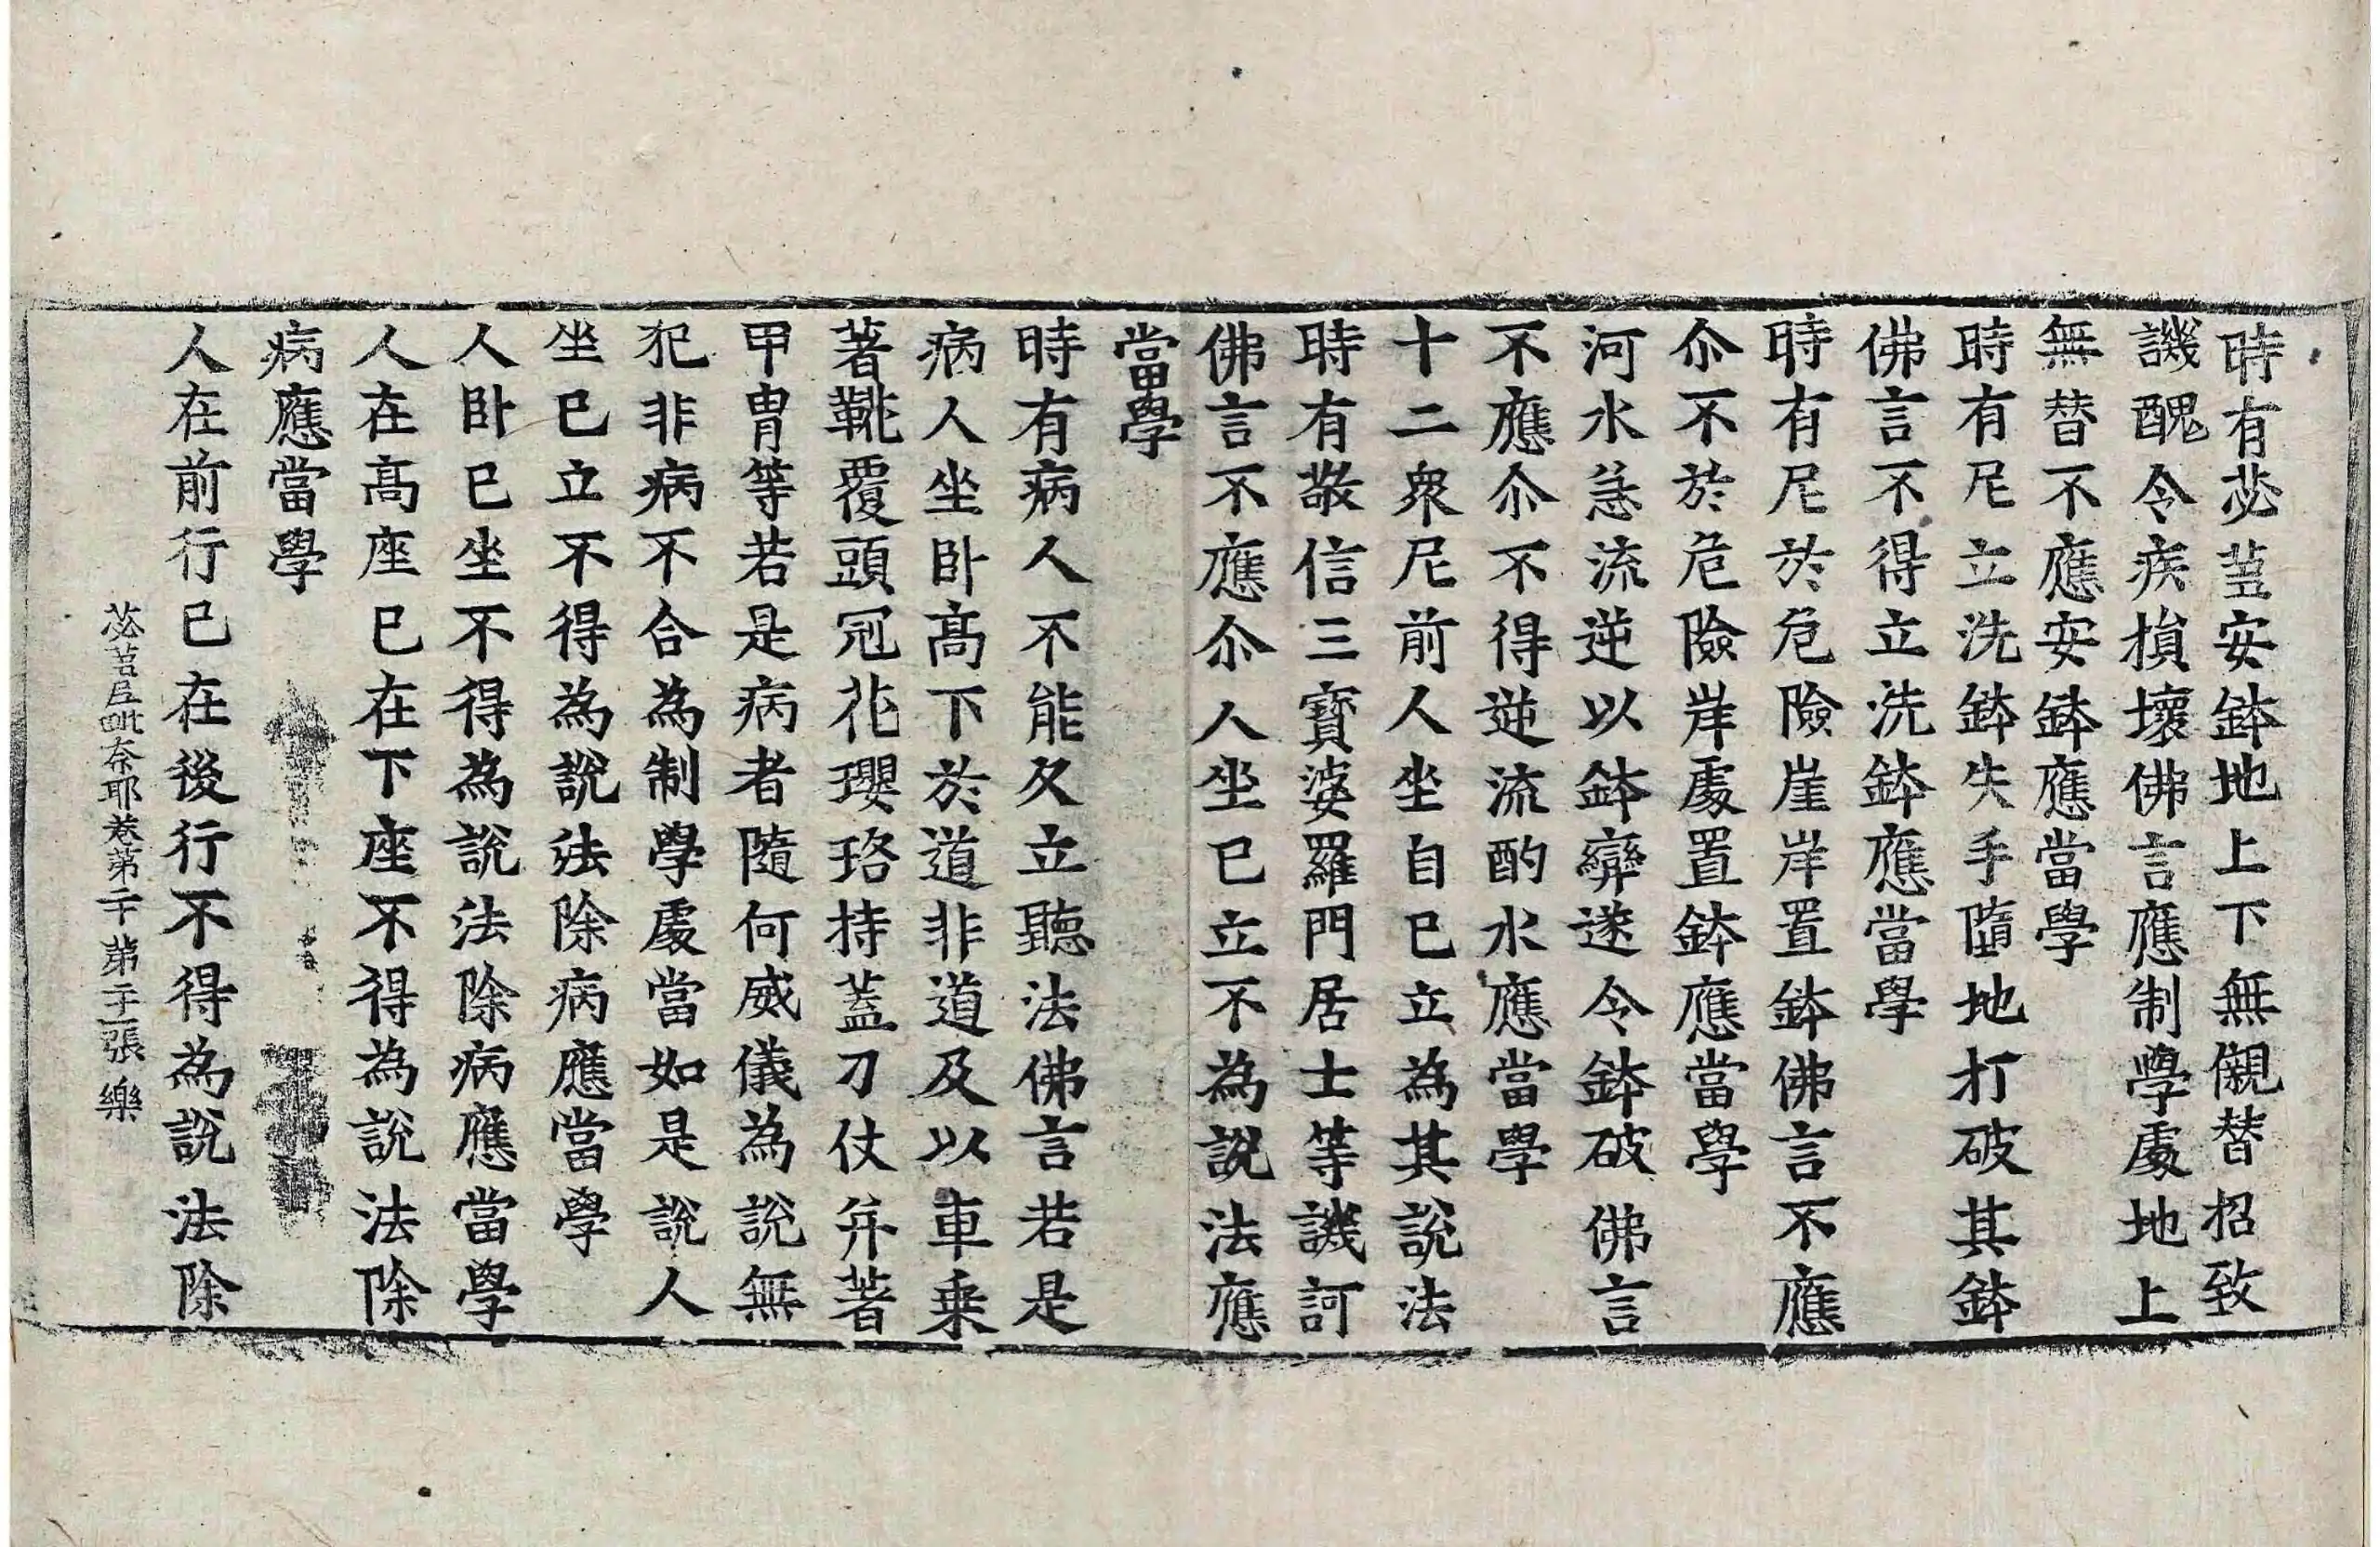 時有苾蒭安鉢地上下無儭替招致
譏醜令疾損壞佛言應制學處地上
無替不應安鉢應當學
時有尼立洗鉢失手墮地打破其鉢
佛言不得立洗鉢應當學
時有尼於危險崖岸置鉢佛言不應
尒不於危險岸處置鉢應當學
河水急流逆以鉢㪺遂令鉢破佛言
不應尒不得逆流酌水應當學
十二衆尼前人坐自己立為其說法
時有敬信三寶婆羅門居士等譏訶
佛言不應尒人坐已立不為說法應
當學
時有病人不能久立聽法佛言若是
病人坐卧高下於道非道及以車乗
著靴覆頭冠花瓔珞持蓋刀仗幷著
甲冑等若是病者隨何威儀為說無
犯非病不合為制學處當如是說人
坐已立不得為說法除病應當學
人卧已坐不得為說法除病應當學
人在高座已在下座不得為說法除
病應當學
人在前行已在後行不得為說法除
苾蒭尼毗奈耶卷第二十第二十一張 樂